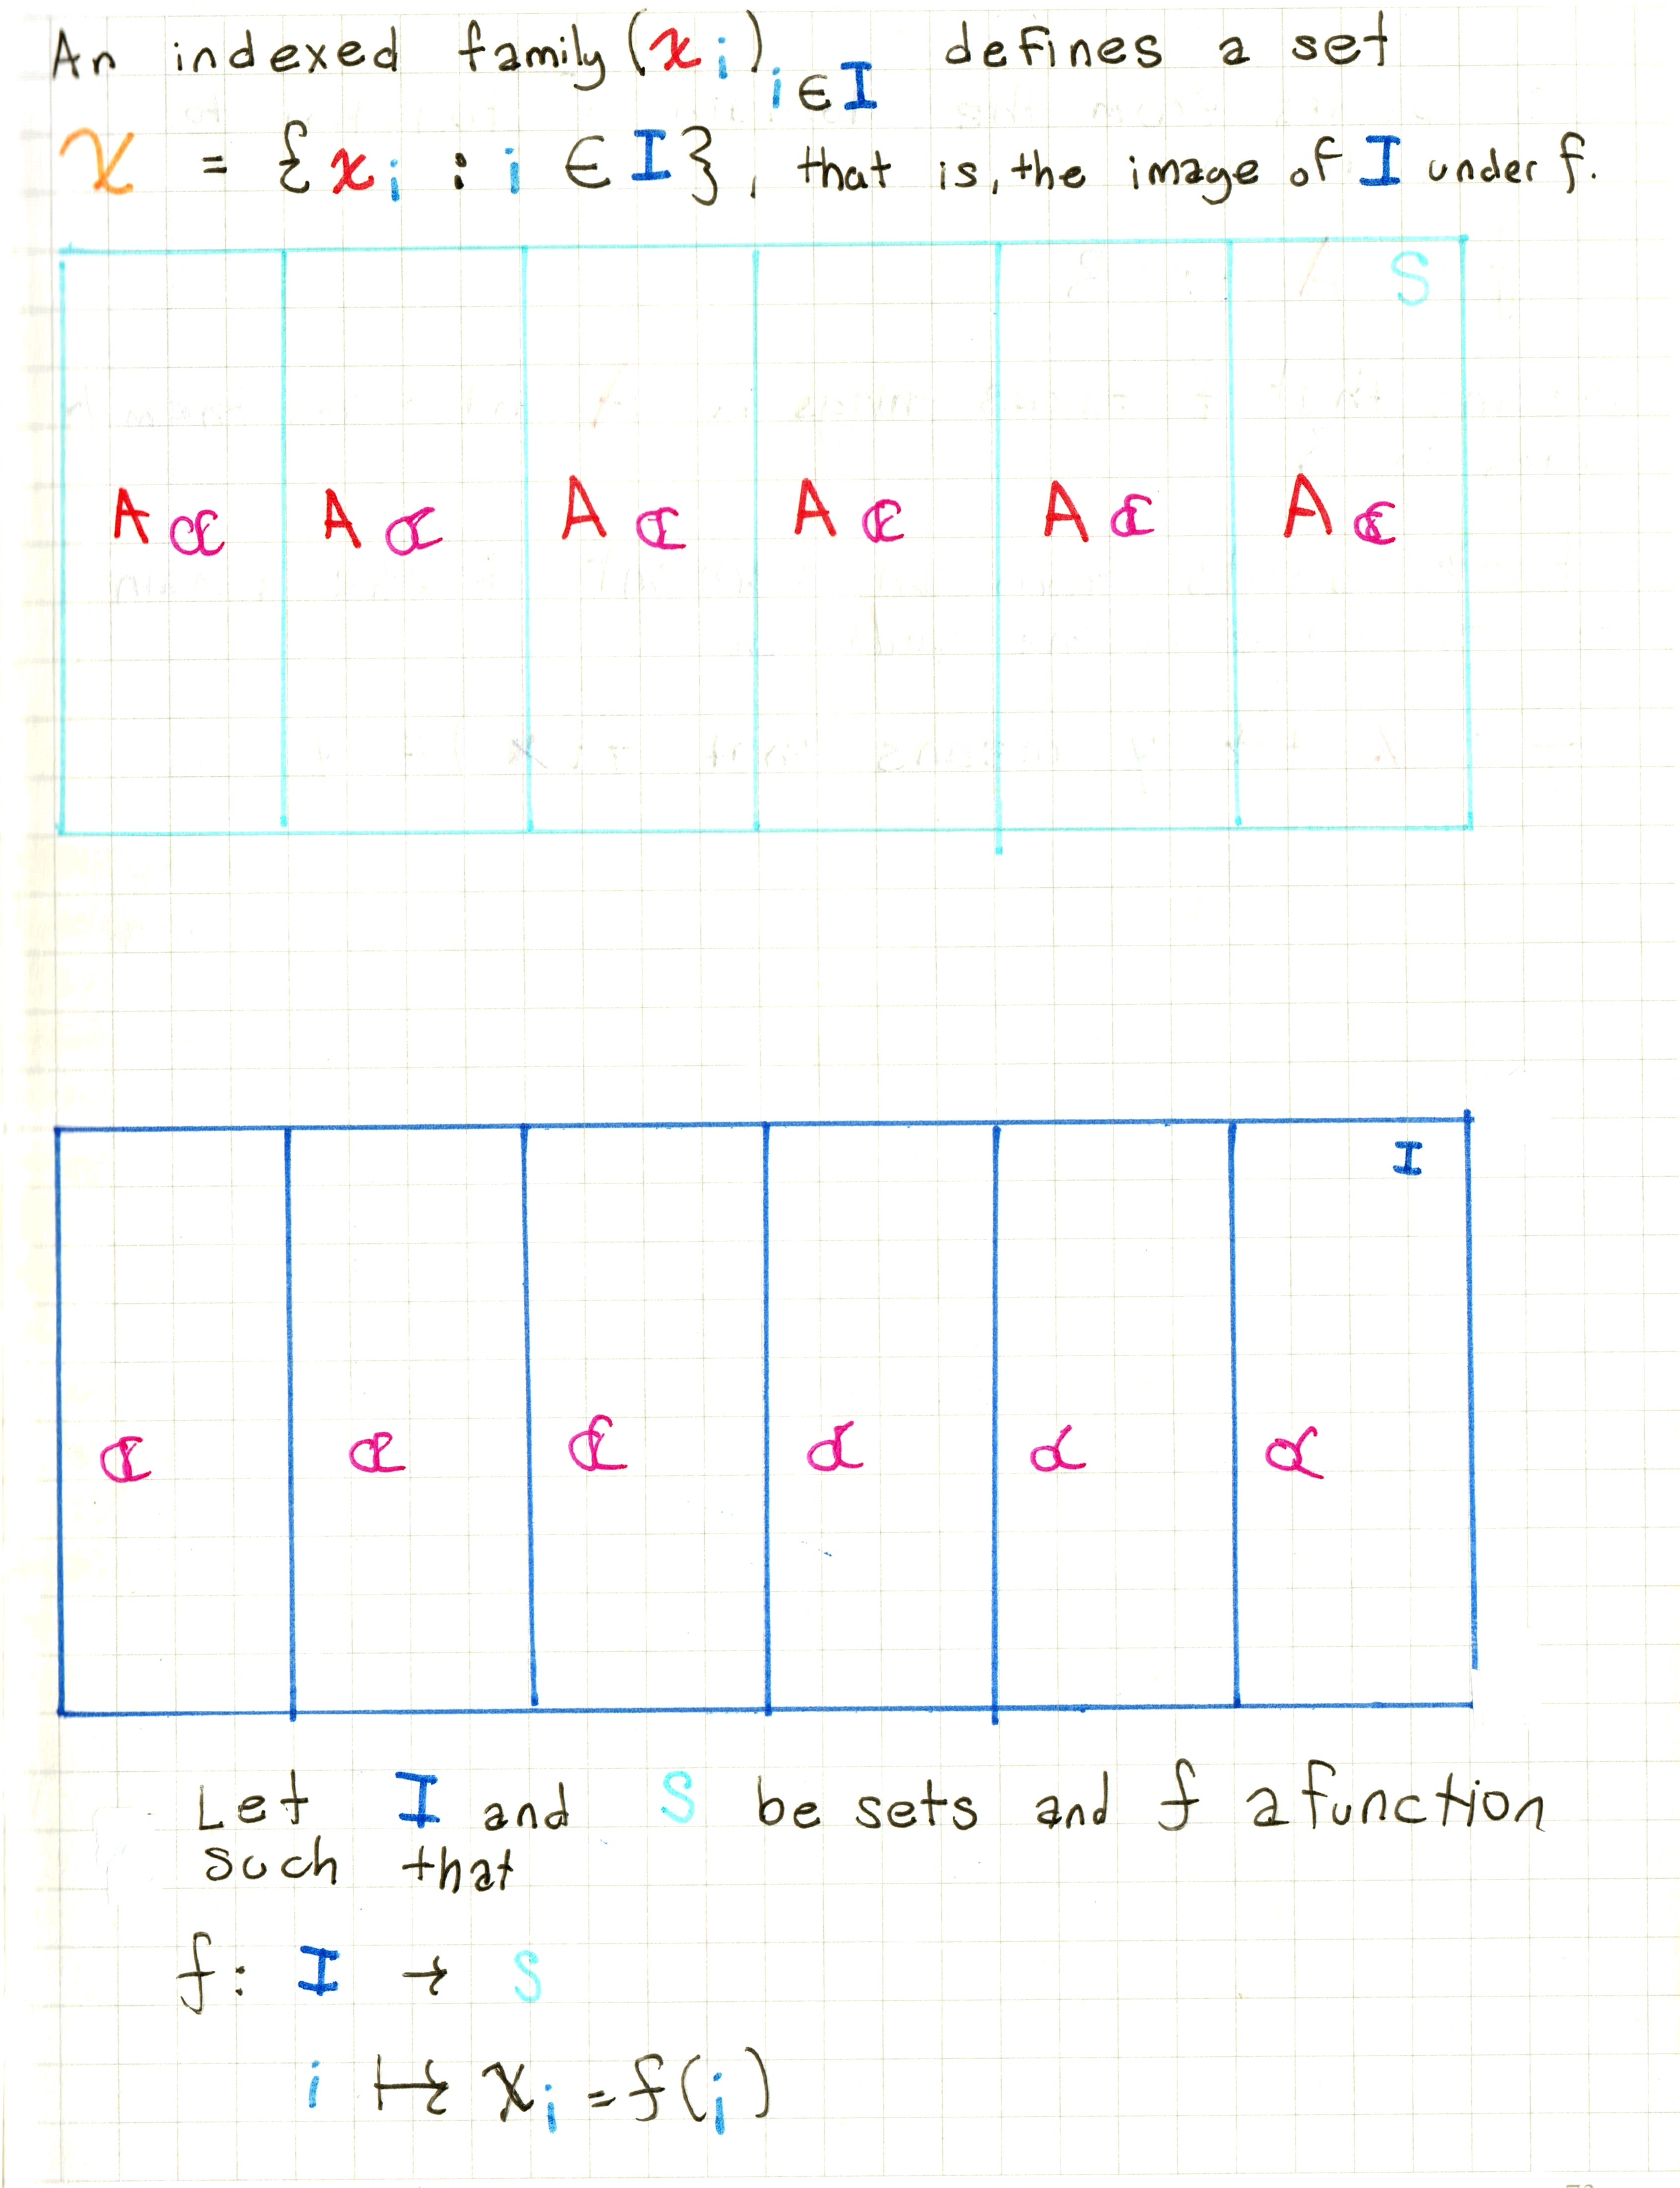 An indexed family (x i) i ∈ I defines a set
X = {x i : i ∈ I}, that is, the image of I under f.
S
A α A α A α A α A α A α
I
α α α α α α
Let I and S be sets and f a function
such that
f: I → S
i ↦ x i = f(i)